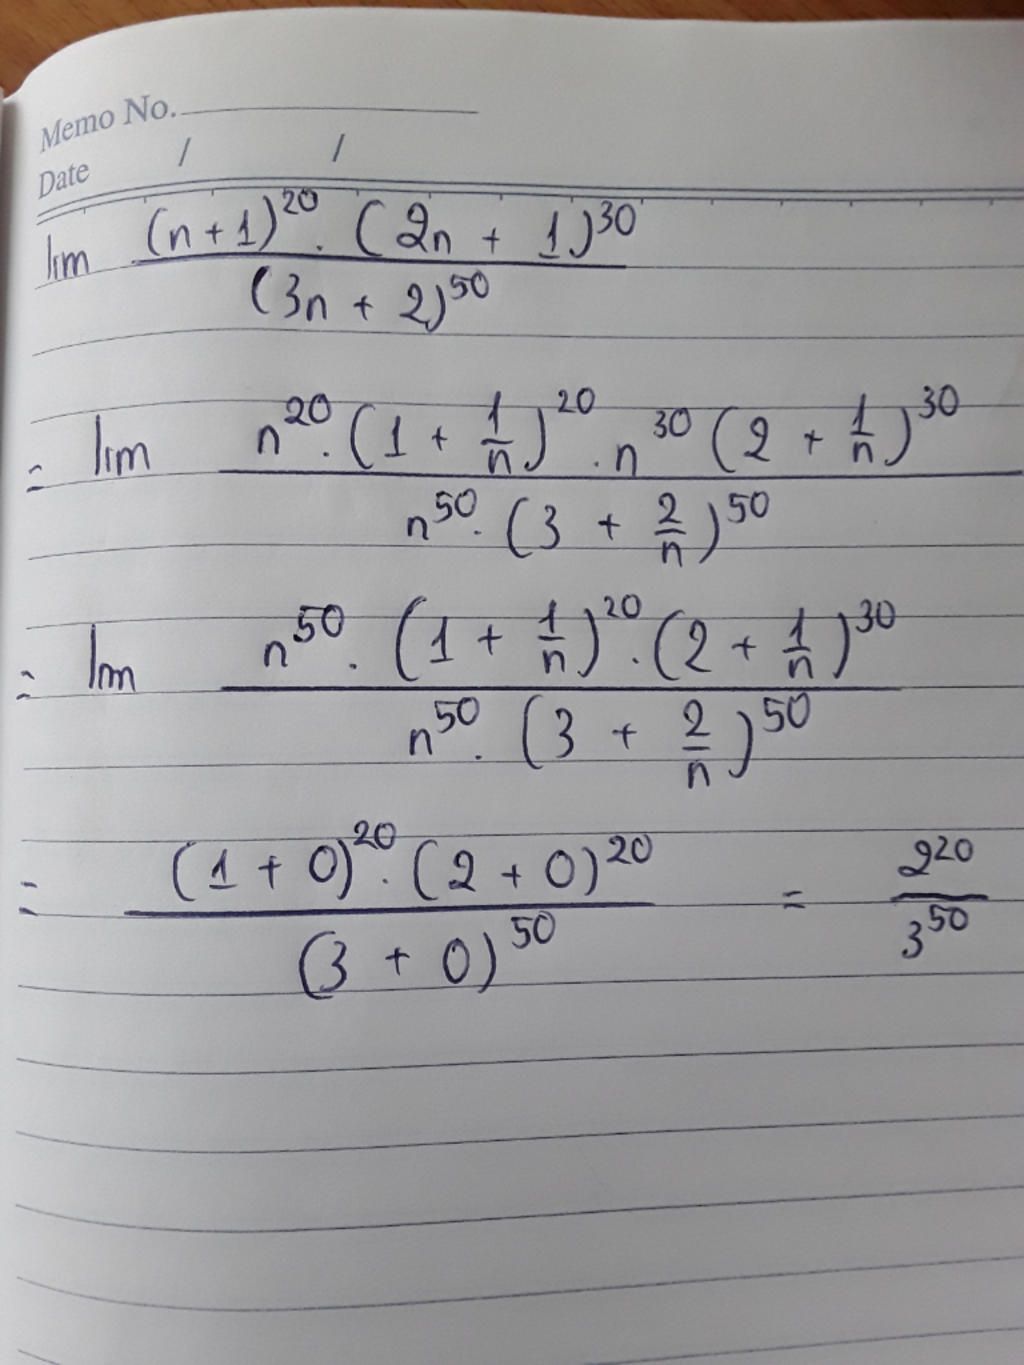 Memo No.
Date / /
lim \frac{(n+1)^{20} . (2n + 1)^{30}}{(3n + 2)^{50}}
= lim \frac{n^{20} . (1 + \frac{1}{n})^{20} . n^{30} (2 + \frac{1}{n})^{30}}{n^{50} . (3 + \frac{2}{n})^{50}}
= lim \frac{n^{50} . (1 + \frac{1}{n})^{20} . (2 + \frac{1}{n})^{30}}{n^{50} . (3 + \frac{2}{n})^{50}}
= \frac{(1 + 0)^{20} . (2 + 0)^{20}}{(3 + 0)^{50}} = \frac{2^{20}}{3^{50}}